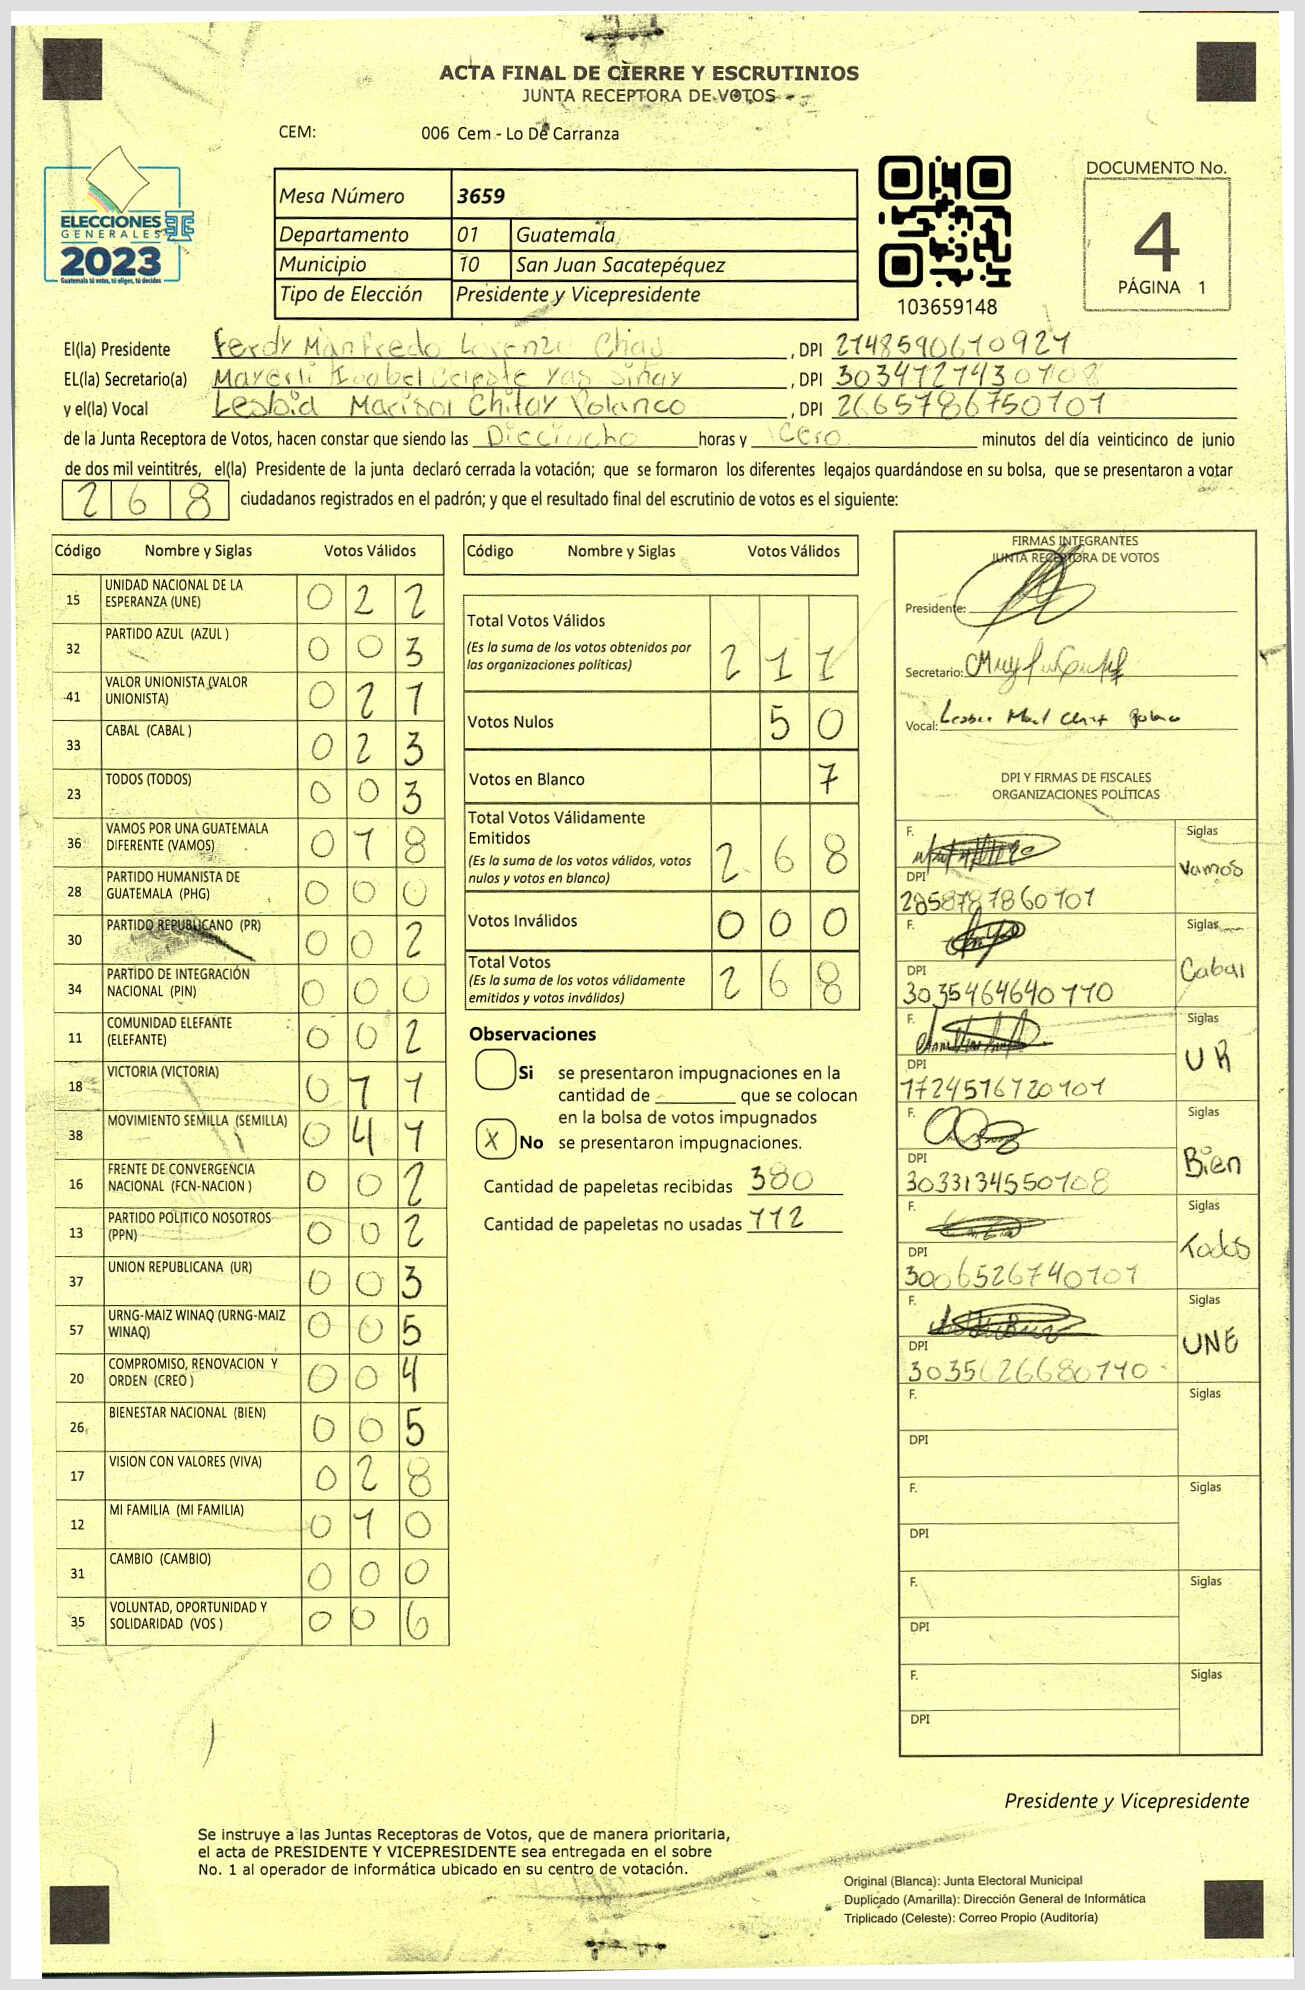 ACTA FINAL DE CIERRE Y ESCRUTINIOS
JUNTA RECEPTORA DE VOTOS
CEM: 006 Cem - Lo De Carranza
ELECCIONES
GENERALES
2023
Guatemala tú votas, tú eliges, tú decides
Mesa Número 3659
Departamento 01 Guatemala
Municipio 10 San Juan Sacatepéquez
Tipo de Elección Presidente y Vicepresidente
103659148
DOCUMENTO No.
4
PÁGINA 1
El(la) Presidente Ferdy Manfredo Lorenzo Chas, DPI 2148590610921
EL(la) Secretario(a) Isabel Celeste, DPI 3034727430108
y el(la) Vocal Lesbia Marisol Chitay Polanco, DPI 2665786750101
de la Junta Receptora de Votos, hacen constar que siendo las Dieciocho horas y Cero minutos del día veinticinco de junio
de dos mil veintitrés, el(la) Presidente de la junta declaró cerrada la votación; que se formaron los diferentes legajos guardándose en su bolsa, que se presentaron a votar
268 ciudadanos registrados en el padrón; y que el resultado final del escrutinio de votos es el siguiente:
Código Nombre y Siglas Votos Válidos
15 UNIDAD NACIONAL DE LA ESPERANZA (UNE) 0 2 2
32 PARTIDO AZUL (AZUL ) 0 0 3
41 VALOR UNIONISTA (VALOR UNIONISTA) 0 2 1
33 CABAL (CABAL ) 0 2 3
23 TODOS (TODOS) 0 0 3
36 VAMOS POR UNA GUATEMALA DIFERENTE (VAMOS) 0 1 8
28 PARTIDO HUMANISTA DE GUATEMALA (PHG) 0 0 0
30 PARTIDO REPUBLICANO (PR) 0 0 2
34 PARTIDO DE INTEGRACIÓN NACIONAL (PIN) 0 0 0
11 COMUNIDAD ELEFANTE (ELEFANTE) 0 0 2
18 VICTORIA (VICTORIA) 0 1 1
38 MOVIMIENTO SEMILLA (SEMILLA) 0 4 1
16 FRENTE DE CONVERGENCIA NACIONAL (FCN-NACION ) 0 0 2
13 PARTIDO POLITICO NOSOTROS (PPN) 0 0 2
37 UNION REPUBLICANA (UR) 0 0 3
57 URNG-MAIZ WINAQ (URNG-MAIZ WINAQ) 0 0 5
20 COMPROMISO, RENOVACION Y ORDEN (CREO ) 0 0 4
26 BIENESTAR NACIONAL (BIEN) 0 0 5
17 VISION CON VALORES (VIVA) 0 2 8
12 MI FAMILIA (MI FAMILIA) 0 1 0
31 CAMBIO (CAMBIO) 0 0 0
35 VOLUNTAD, OPORTUNIDAD Y SOLIDARIDAD (VOS ) 0 0 6
Código Nombre y Siglas Votos Válidos
Total Votos Válidos 2 1 1
(Es la suma de los votos obtenidos por
las organizaciones políticas)
Votos Nulos 5 0
Votos en Blanco 7
Total Votos Válidamente
Emitidos 2 6 8
(Es la suma de los votos válidos, votos
nulos y votos en blanco)
Votos Inválidos 0 0 0
Total Votos 2 6 8
(Es la suma de los votos válidamente
emitidos y votos inválidos)
Observaciones
Si se presentaron impugnaciones en la
cantidad de ________ que se colocan
en la bolsa de votos impugnados
X No se presentaron impugnaciones.
Cantidad de papeletas recibidas 380
Cantidad de papeletas no usadas 112
FIRMAS INTEGRANTES
JUNTA RECEPTORA DE VOTOS
Presidente:
Secretario:
Vocal:
DPI Y FIRMAS DE FISCALES
ORGANIZACIONES POLÍTICAS
F. Siglas Vamos
DPI 2858787860101
F. Siglas Cabal
DPI 3035464640110
F. Siglas UR
DPI 1724516720101
F. Siglas Bien
DPI 3033134550108
F. Siglas Todos
DPI 3006526740101
F. Siglas UNE
DPI 3035626680110
F. Siglas
DPI
F. Siglas
DPI
F. Siglas
DPI
F. Siglas
DPI
Presidente y Vicepresidente
Se instruye a las Juntas Receptoras de Votos, que de manera prioritaria,
el acta de PRESIDENTE Y VICEPRESIDENTE sea entregada en el sobre
No. 1 al operador de informática ubicado en su centro de votación.
Original (Blanca): Junta Electoral Municipal
Duplicado (Amarilla): Dirección General de Informática
Triplicado (Celeste): Correo Propio (Auditoría)